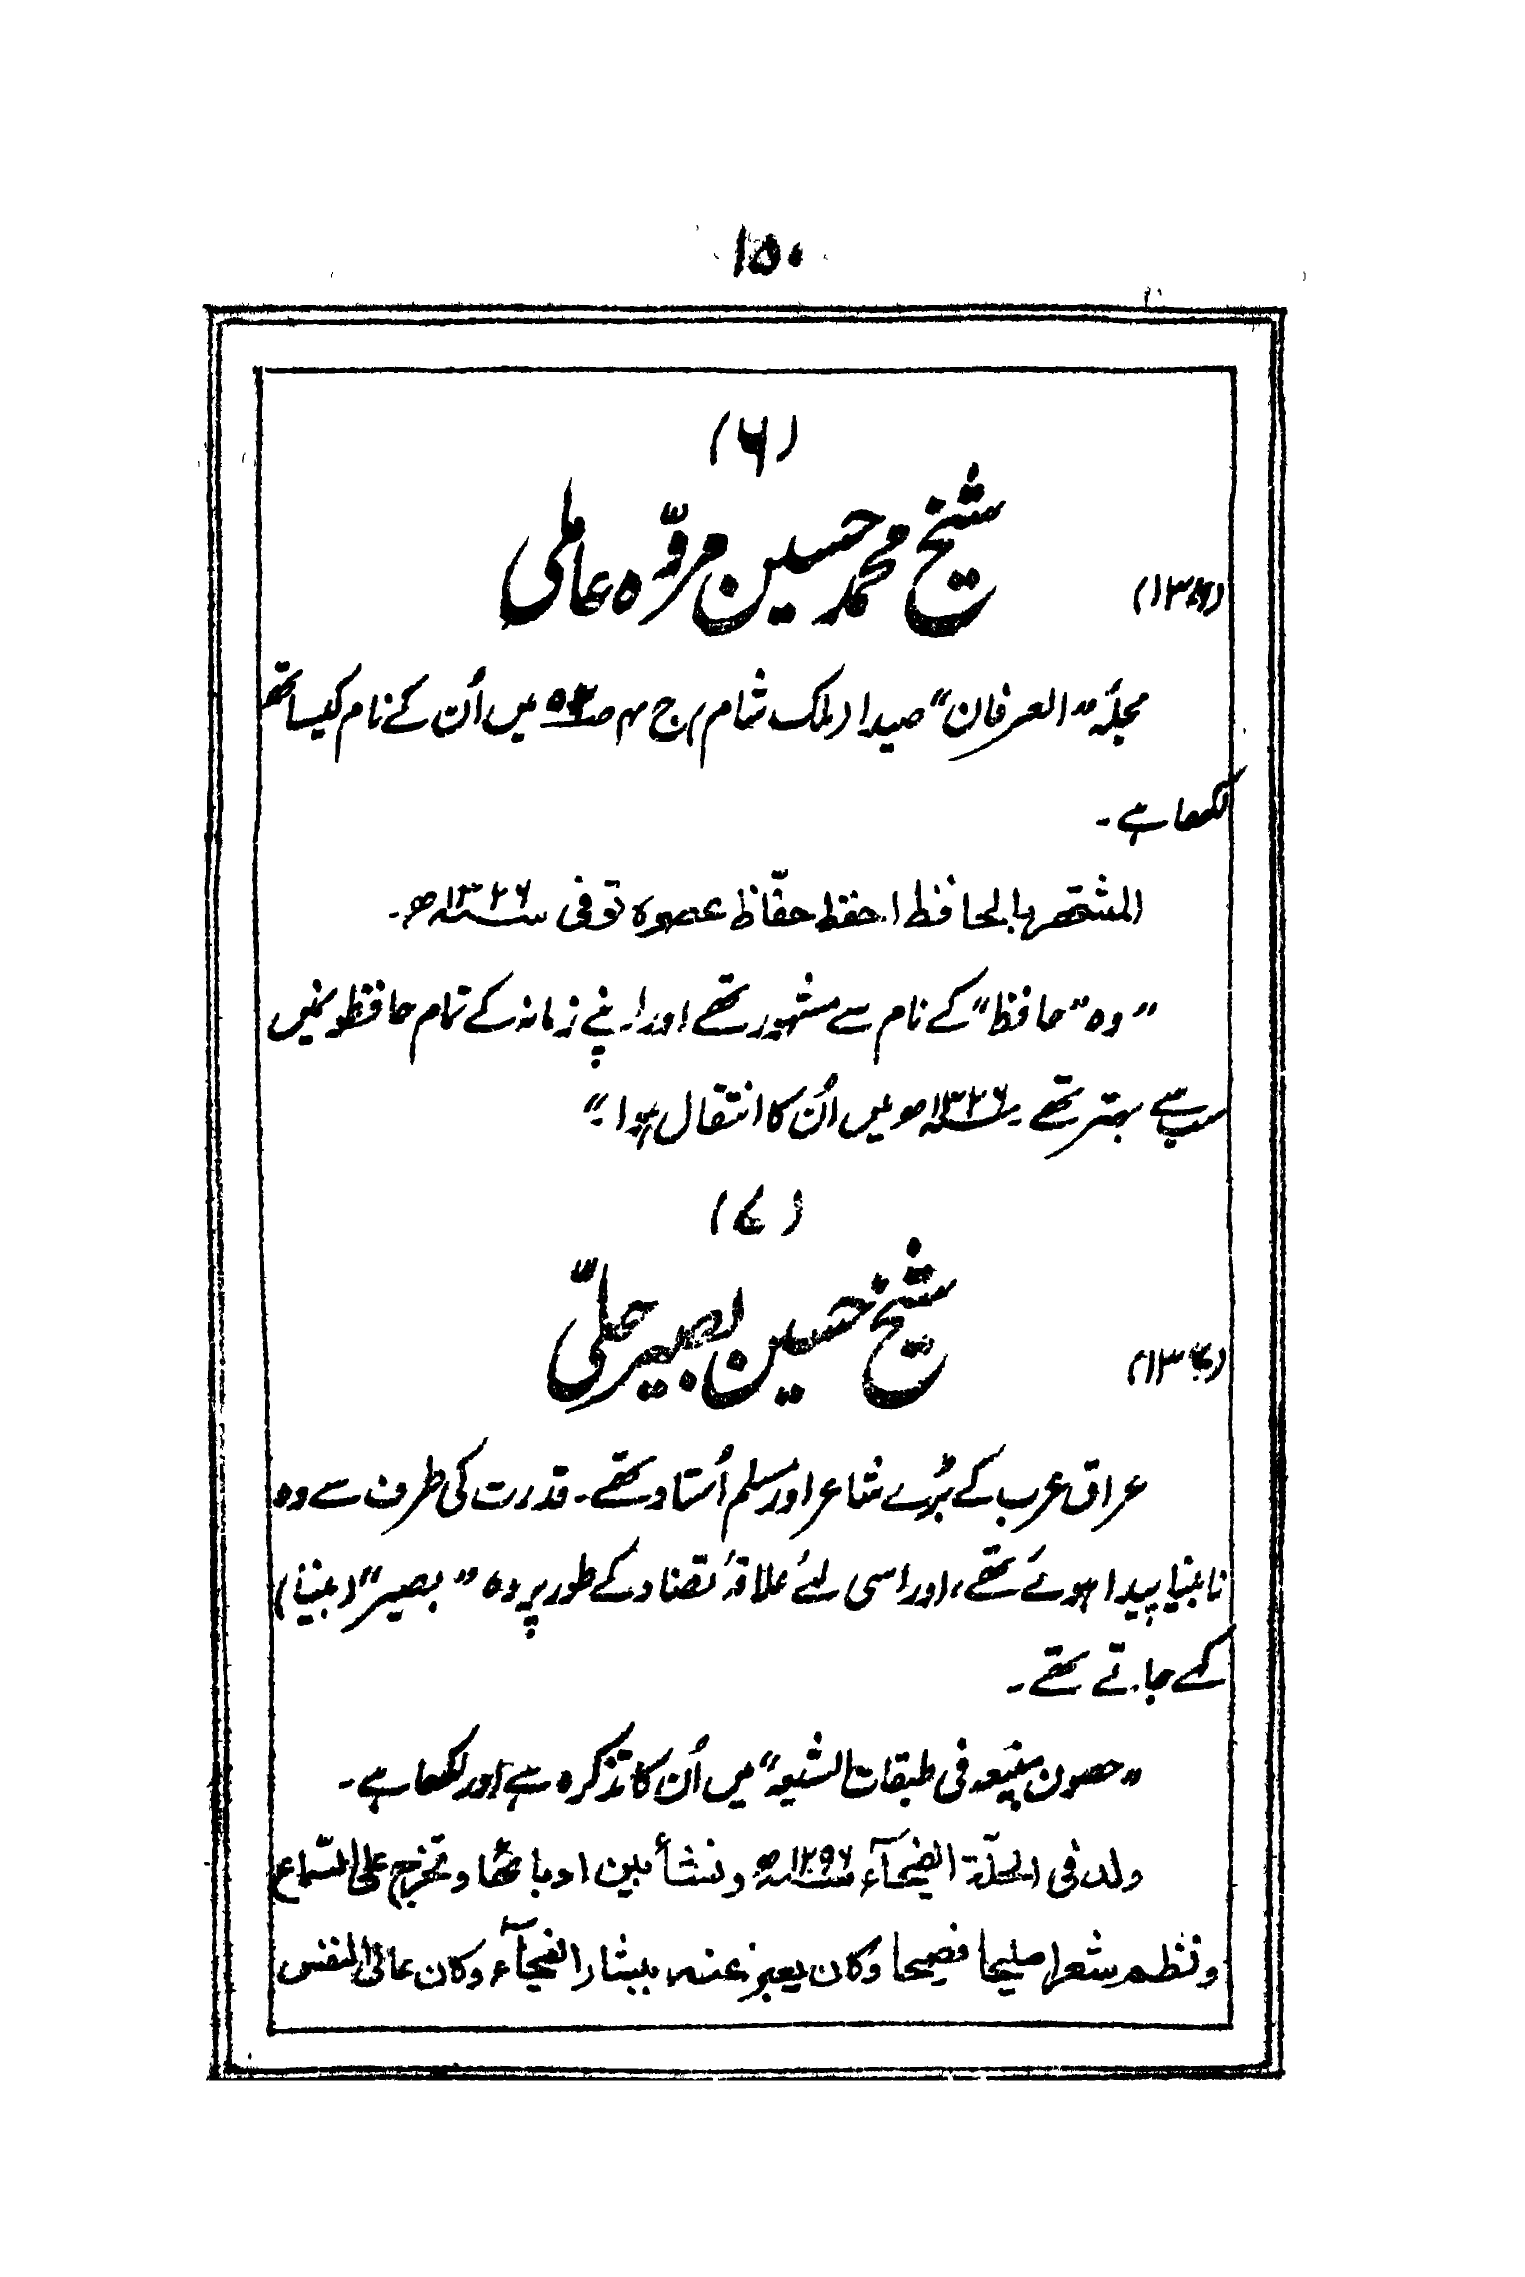 ۱۵۰
(۶)
شیخ محمد حسین مروّہ عاملی
مجلہ "العرفان" صیدا (ملک شام) ج ۳ میں اُن کے نام کیساتھ
لکھا ہے۔
المشتھر بالحافظ احفظ حفّاظ عصرہ توفی سنہ ۱۳۲۶ھ۔
"وہ "حافظ" کے نام سے مشہور تھے اور اپنے زمانہ کے تمام حافظونمیں
سب سے بہتر تھے۔ سنہ ۱۳۲۶ھ میں اُن کا انتقال ہوا۔"
(۷)
شیخ حسین بصیر حلّی
عراق عرب کے بڑے شاعر اور مسلم اُستاد تھے۔ قدرت کی طرف سے وہ
نابینا پیدا ہوئے تھے، اور اسی لئے علاقۂ تضاد کے طور پر وہ "بصیر" (بینا)
کہے جاتے تھے۔
"حصون منیعہ فی طبقات الشیعہ" میں اُن کا تذکرہ ہے اور لکھا ہے۔
ولد فی الحلّۃ الفیحآء سنہ ۱۲۹۶ھ ونشأ بین ادبائھا وتخرج علی السّماع
ونظم شعرا ملیحا فصیحا وکان یعبر عنہ ببشار الفیحآء وکان عالی النفس